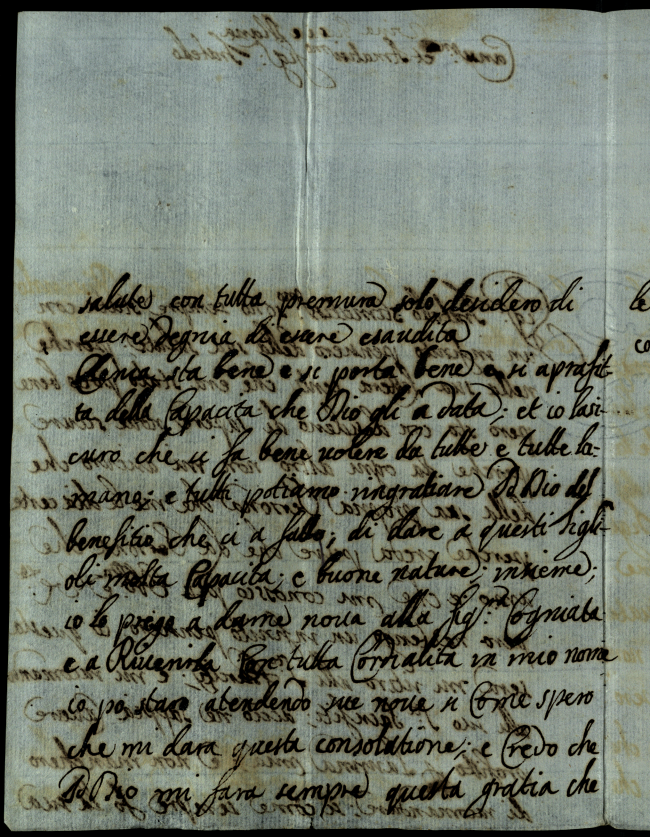 salute con tutta premura solo desidero di
essere degnia di esere esaudita
Clenia sta bene e si porta bene e si aprofit-
ta della Capacita che Dio gli a data; et io lasi-
curo che si fa bene volere da tutti e tutte la
mano; e tutti potiamo ringratiare Dio del
benefitio che ci a fatto; di dare a questi figli-
oli molta Capacita; e buone nature; insieme;
io lo prego a darne nova alla Sig.ra Cogniata
e a Riverirla Con tutta Cordialita in mio nome
io po staro atendendo sue nove si Come spero
che mi dara questa consolatione; e Credo che
Dio mi fara sempre questa gratia che
le
co